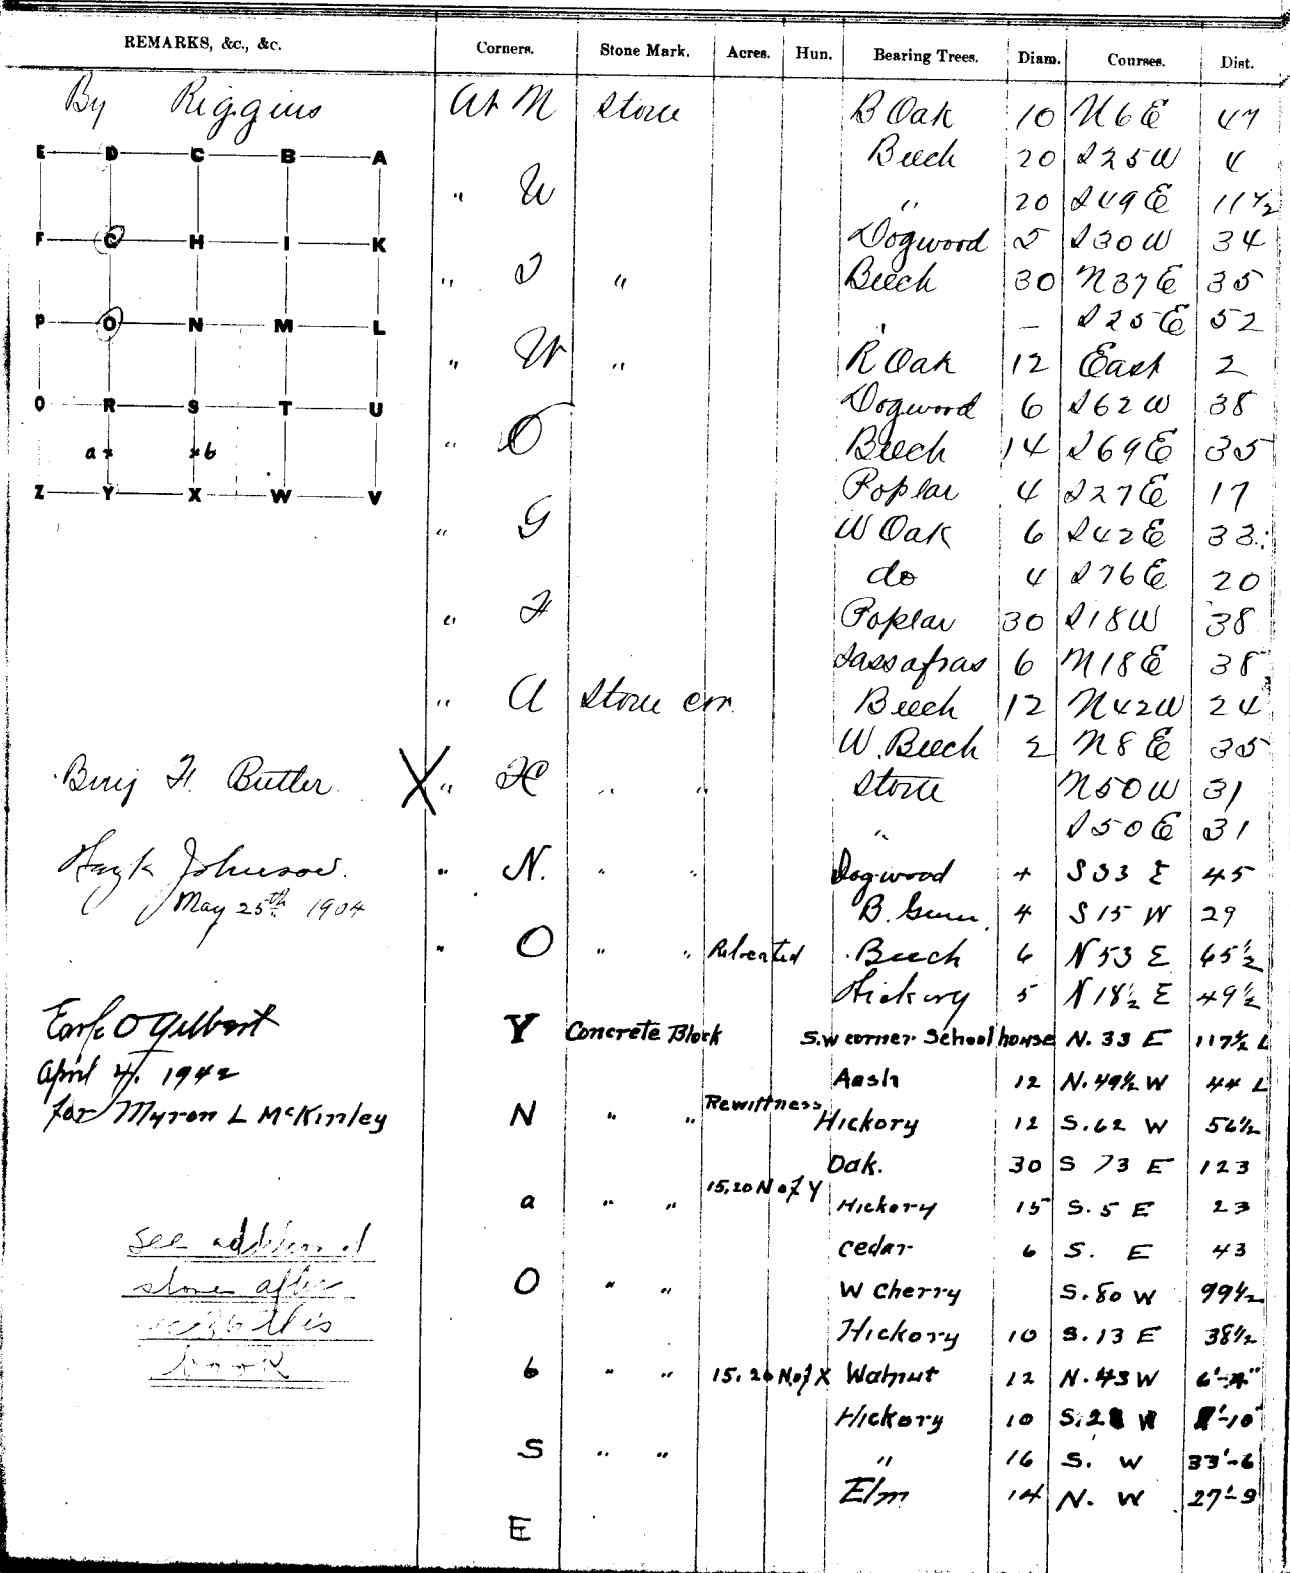 REMARKS, &c., &c. Corners. Stone Mark. Acres. Hun. Bearing Trees. Diam. Courses. Dist.
By Riggins At M Stone B Oak 10 N 6 E 47
E D C B A
Beech 20 S 25 W 4
" U " 20 S 49 E 11 1/2
F G H I K
Dogwood 5 S 30 W 34
" " Beech 30 N 37 E 35
P O N M L
" — S 25 E 52
" W " R Oak 12 East 2
Q R S T U
Dogwood 6 S 62 W 38
" O Beech 14 S 69 E 35
a b
Z Y X W V
Poplar 4 S 27 E 17
" G W Oak 6 S 42 E 33
do 4 S 76 E 20
" F Poplar 30 S 18 W 38
Sassafras 6 N 18 E 38
" A Stone cor. Beech 12 N 42 W 24
W. Beech 2 N 8 E 35
Benj F. Butler X " H " " Stone N 50 W 31
" S 50 E 31
Johnson. " N. " " Dogwood 4 S 33 E 45
May 25th 1904 B. Gum 4 S 15 W 29
" O " " Relocated Beech 6 N 53 E 65 1/2
Hickory 5 N 18 1/2 E 49 1/2
Earl O Gilbert Y Concrete Block S.W corner School house N. 33 E 117 1/2 L
April 4, 1942 Aash 12 N. 49 1/2 W 44 L
for Myron L McKinley N " " Rewittness Hickory 12 S. 62 W 56 1/2
Oak. 30 S 73 E 123
a " " 15.20 N of Y Hickory 15 S. 5 E 23
See additional cedar 6 S. E 43
stone after O " " W Cherry S. 80 W 99 1/2
this Hickory 10 S. 13 E 38 1/2
book b " " 15.20 N of X Walnut 12 N. 43 W 6'-4"
Hickory 10 S. W
S " " " 16 S. W 33'-6
Elm 14 N. W 27'-9
E